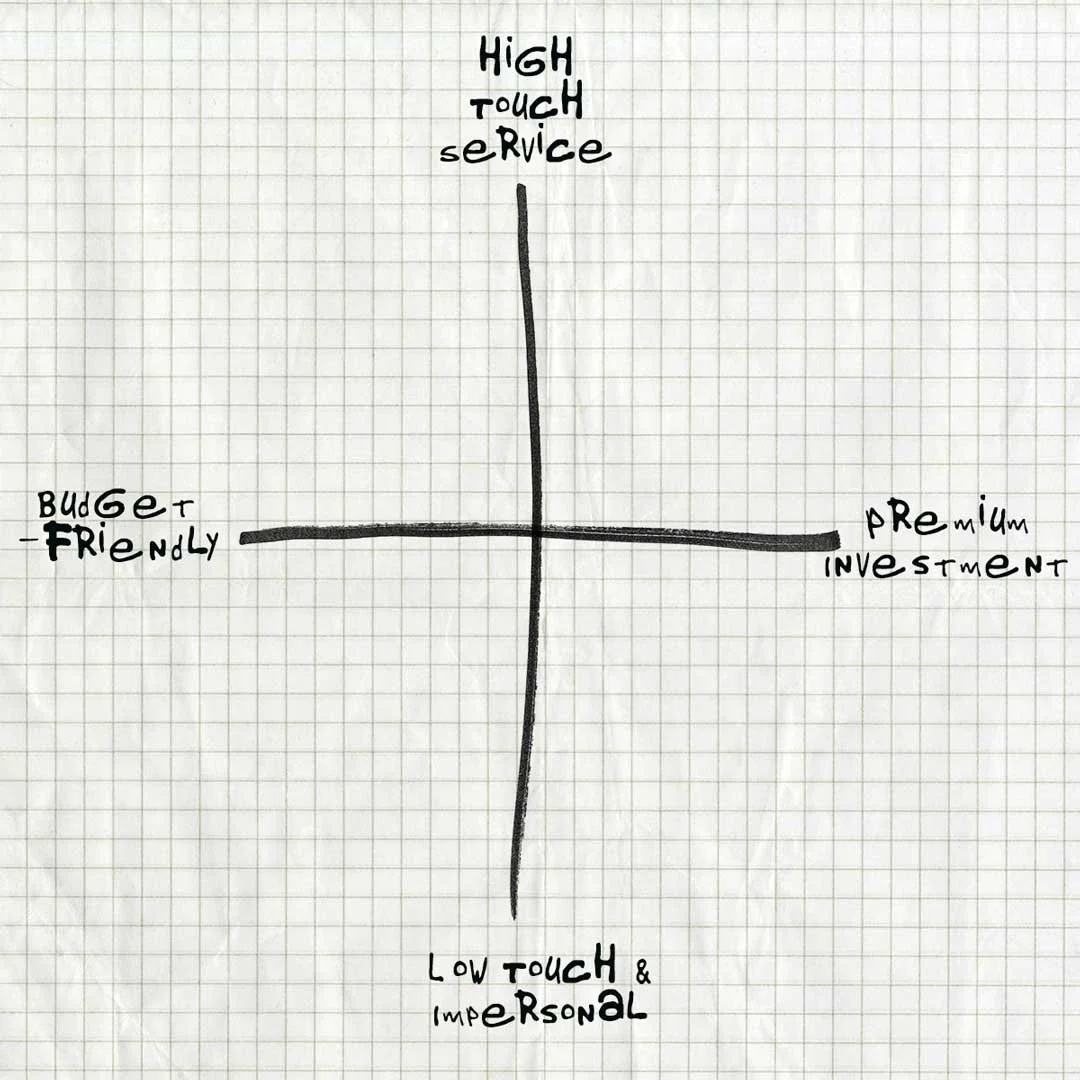 HiGH
TOUCH
SeRViCe
BUdGeT
-FRieNdLY
PRemium
INVeSTmeNT
LOW TOUCH &
ImPeRSONaL